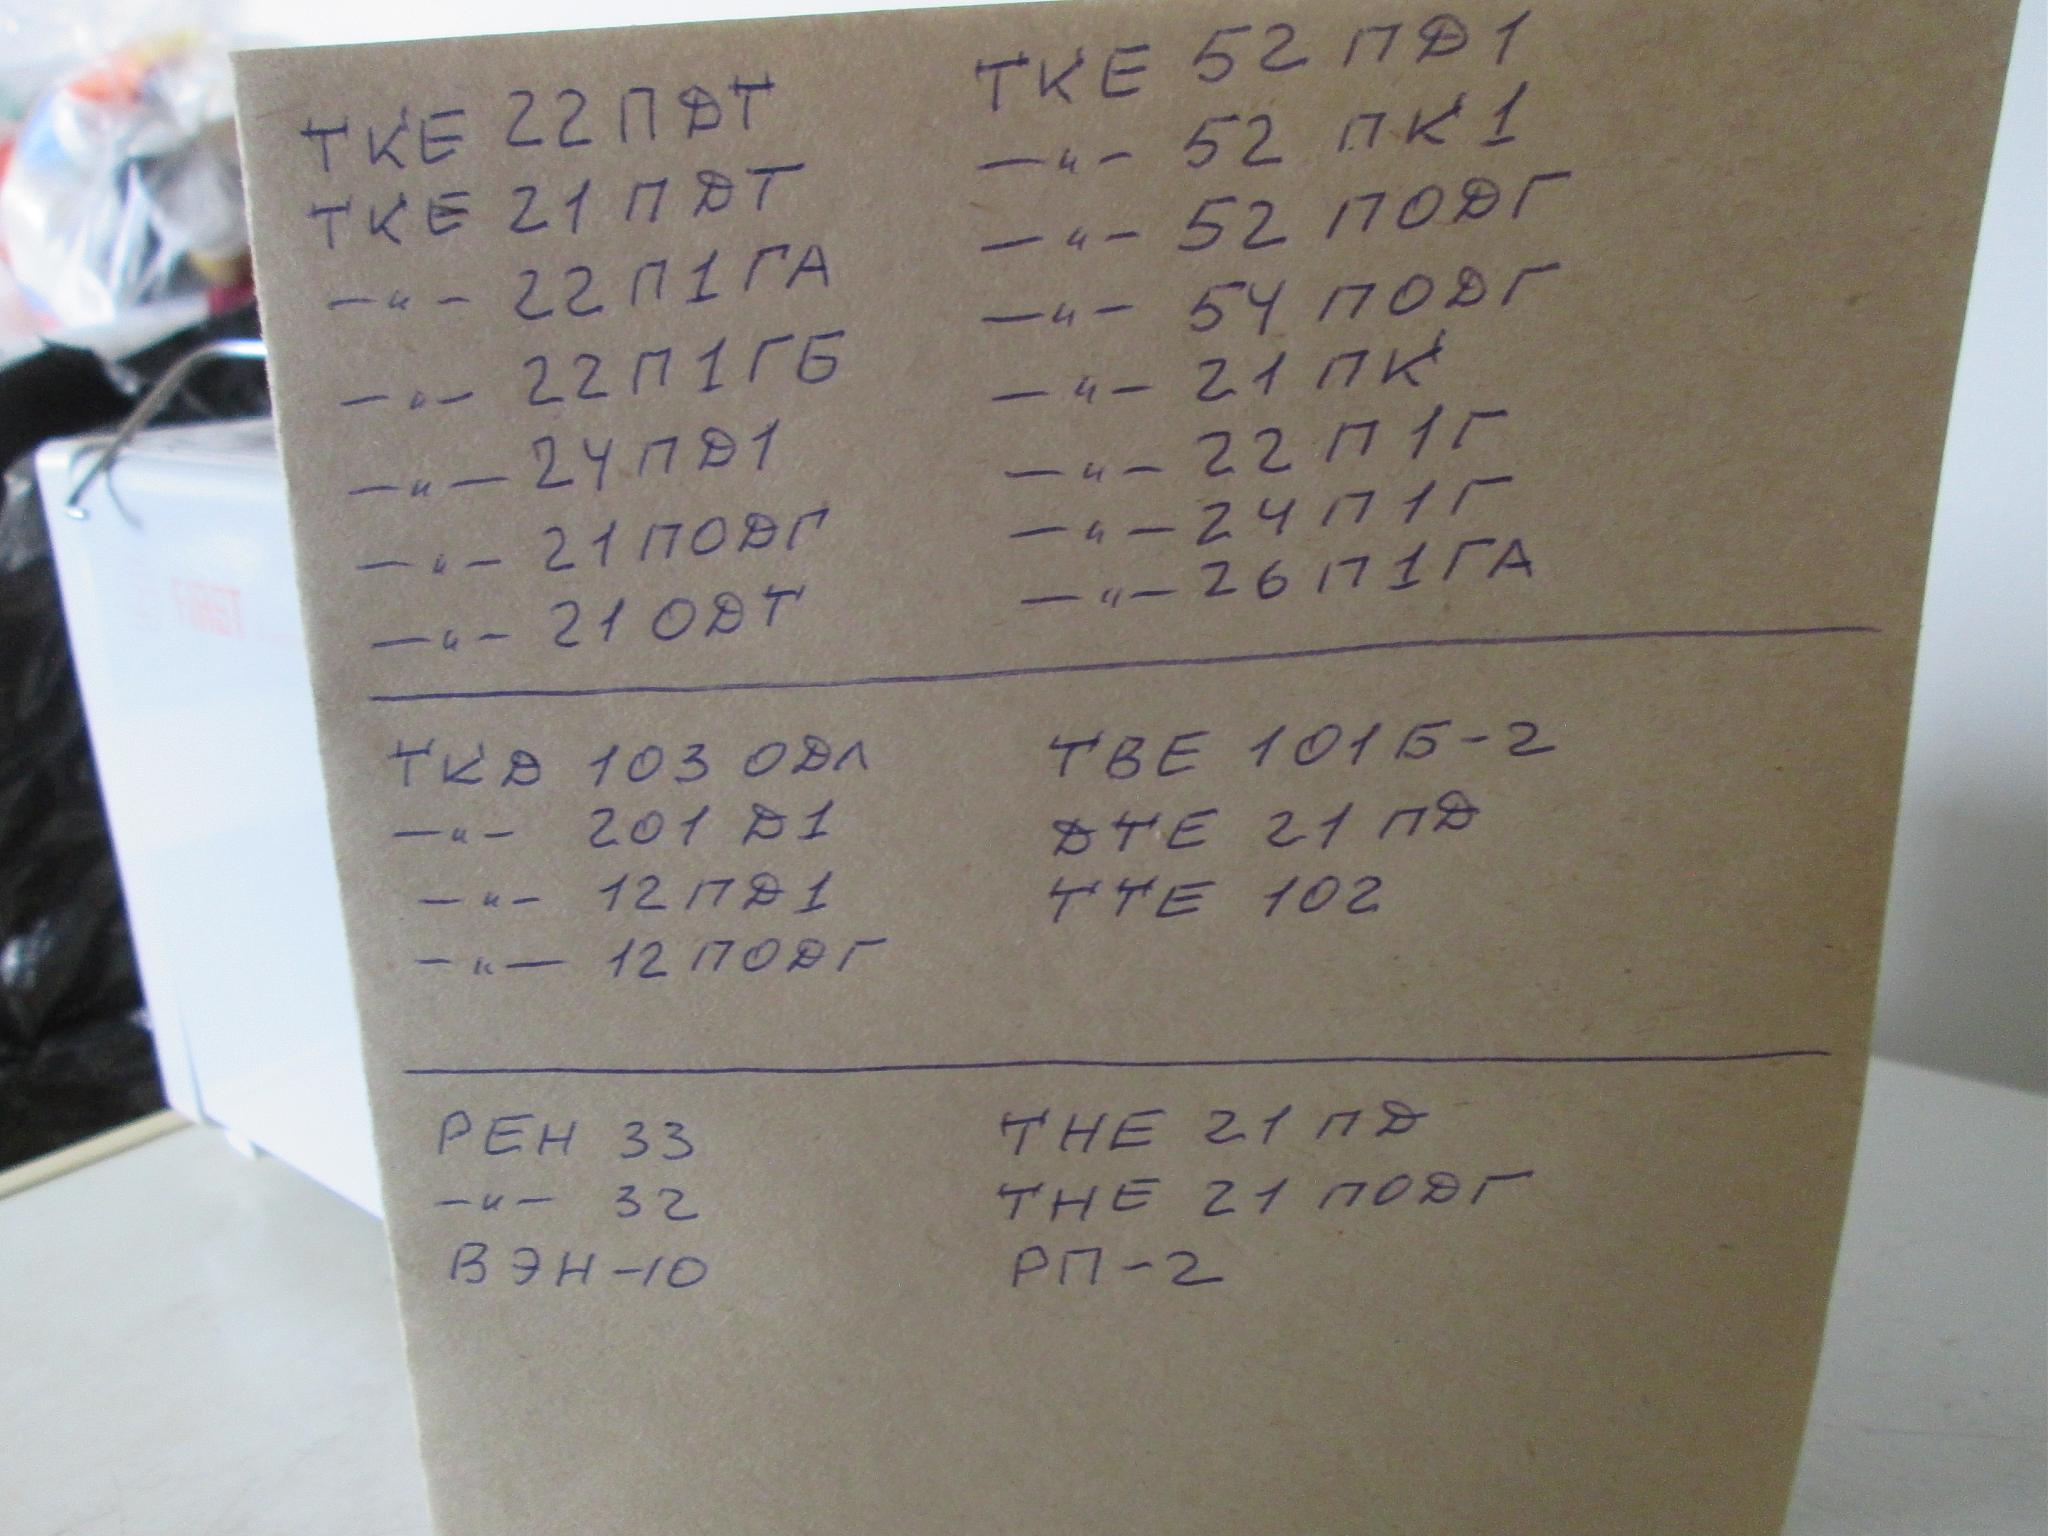 ТКЕ 22 ПДТ
ТКЕ 21 ПДТ
—"— 22 П1ГА
—"— 22 П1ГБ
—"— 24 ПД1
—"— 21 ПОДГ
—"— 21 ОДТ
ТКЕ 52 ПД1
—"— 52 ПК1
—"— 52 ПОДГ
—"— 54 ПОДГ
—"— 21 ПК
—"— 22 П1Г
—"— 24 П1Г
—"— 26 П1ГА
ТКД 103 ОДЛ
—"— 201 Д1
—"— 12 ПД1
—"— 12 ПОДГ
ТВЕ 101 Б-2
ДТЕ 21 ПД
ТТЕ 102
РЕН 33
—"— 32
ВЭН-10
ТНЕ 21 ПД
ТНЕ 21 ПОДГ
РП-2